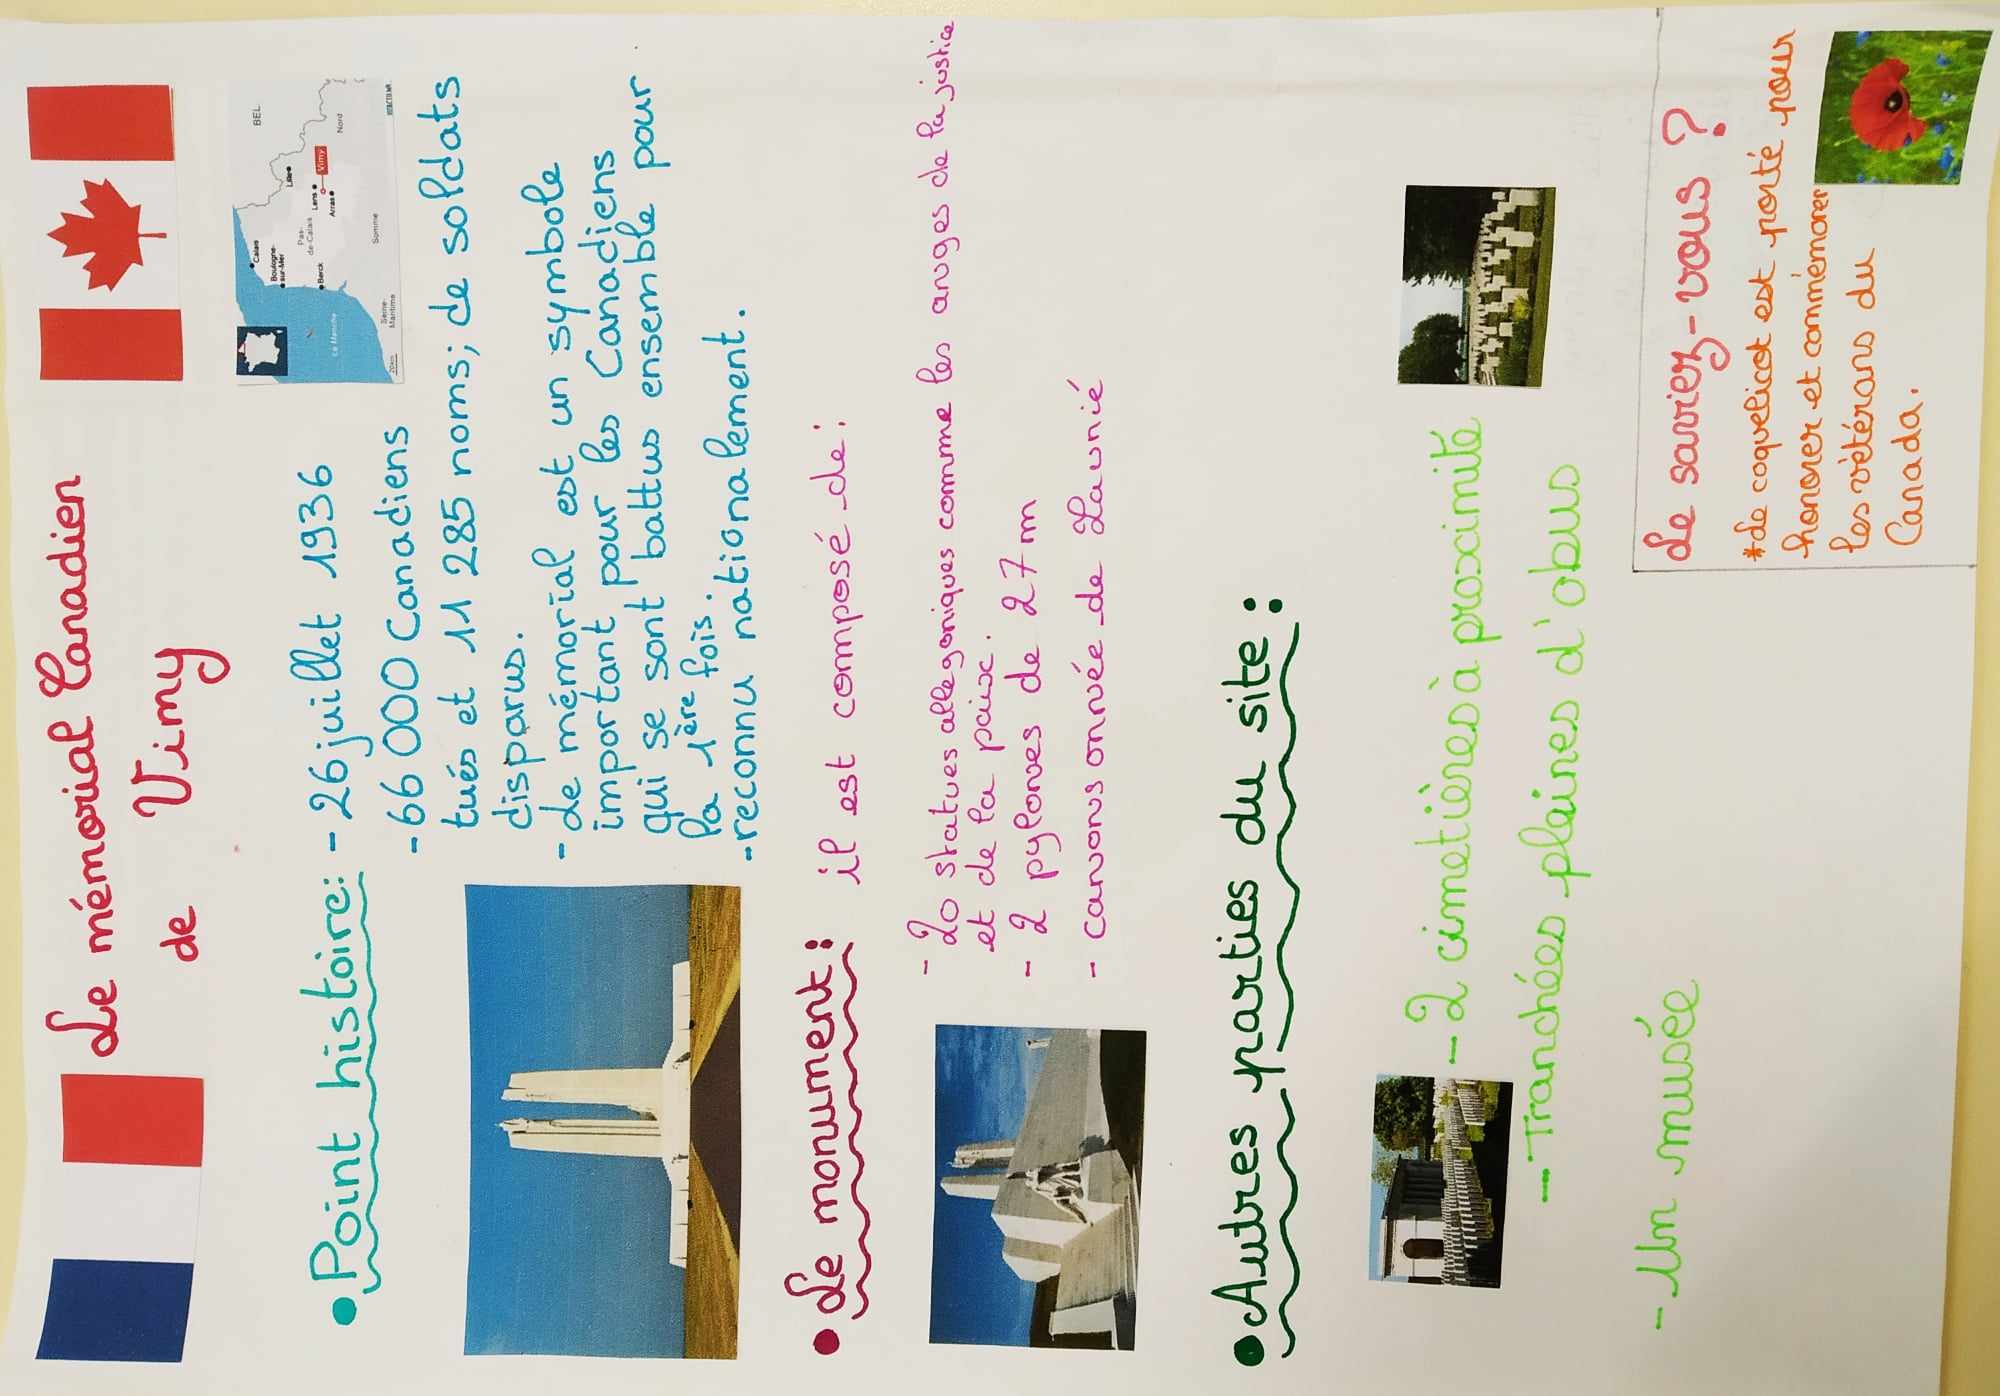 Le mémorial Canadien
de Vimy
BEL
Calais
Lille
Boulogne-
sur-Mer
Pas-
de-Calais
Lens
Vimy
Nord
Berck
Arras
La Manche
Somme
Seine-
Maritime
20km
• Point histoire: - 26 juillet 1936
- 66 000 Canadiens
tués et 11 285 noms; de soldats
disparus.
- Le mémorial est un symbole
important pour les Canadiens
qui se sont battus ensemble pour
la 1ère fois.
- reconnu nationalement.
• Le monument: il est composé de:
- 20 statues allegoriques comme les anges de la justice
et de la paix.
- 2 pylones de 27 m
- Canons
• Autres parties du site:
- 2 cimetières à proximité
- Tranchées pleines d'obus
- Un musée
Le saviez-vous ?
*Le coquelicot est porté pour
honorer et commémorer
les vétérans du
Canada.